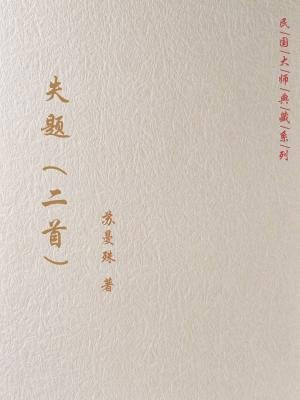 民国大师典藏系列
失题（二首）
苏曼殊 著